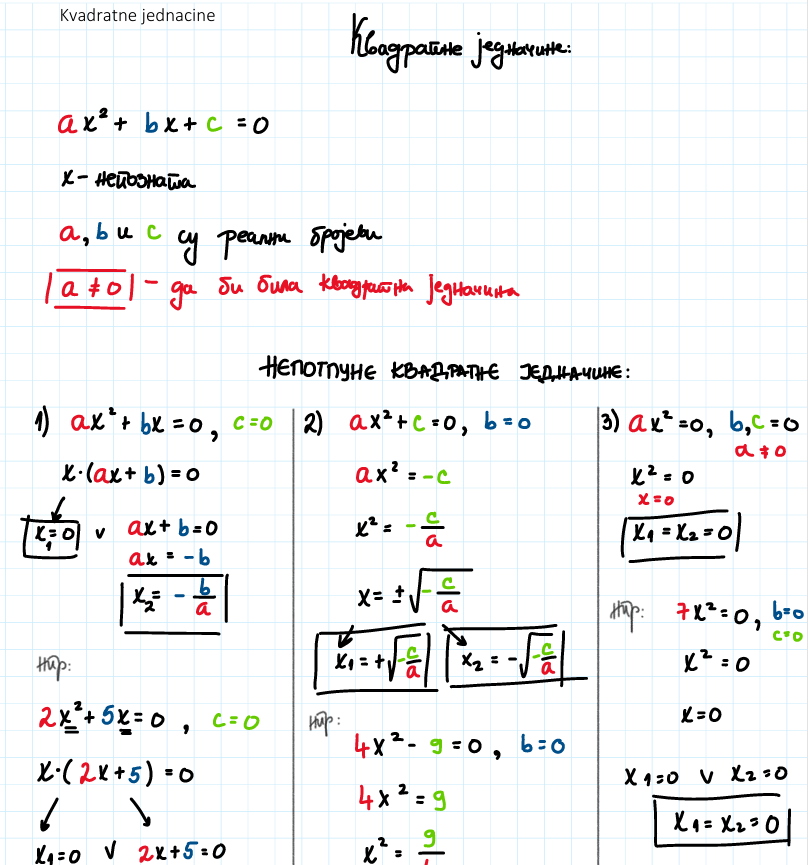 Kvadratne jednacine
Квадратне једначине:
ax² + bx + c = 0
x - непозната
a, b и c су реални бројеви
a ≠ 0 - да би била квадратна једначина
НЕПОТПУНЕ КВАДРАТНЕ ЈЕДНАЧИНЕ:
1) ax² + bx = 0, c = 0
x·(ax + b) = 0
x₁ = 0 ∨ ax + b = 0
ax = -b
x₂ = -b/a
Нпр:
2x² + 5x = 0, c = 0
x·(2x + 5) = 0
x₁ = 0 ∨ 2x + 5 = 0
2) ax² + c = 0, b = 0
ax² = -c
x² = -c/a
x = ±√(-c/a)
x₁ = +√(-c/a) x₂ = -√(-c/a)
Нпр:
4x² - 9 = 0, b = 0
4x² = 9
x² = 9/
3) ax² = 0, b, c = 0
a ≠ 0
x² = 0
x = 0
x₁ = x₂ = 0
Нпр: 7x² = 0, b = 0
c = 0
x² = 0
x = 0
x₁ = 0 ∨ x₂ = 0
x₁ = x₂ = 0